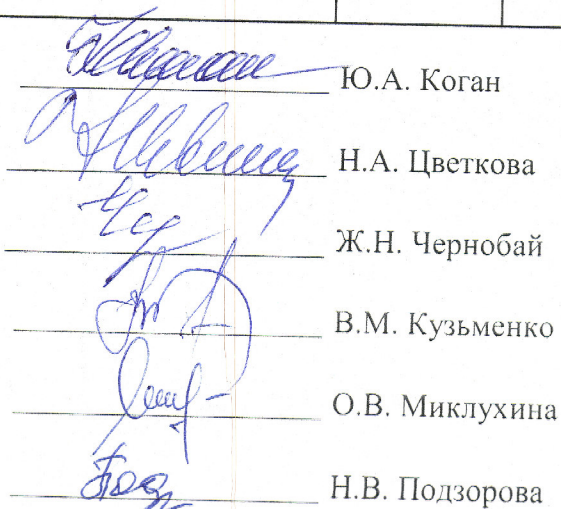 Ю.А. Коган
Н.А. Цветкова
Ж.Н. Чернобай
В.М. Кузьменко
О.В. Миклухина
Н.В. Подзорова